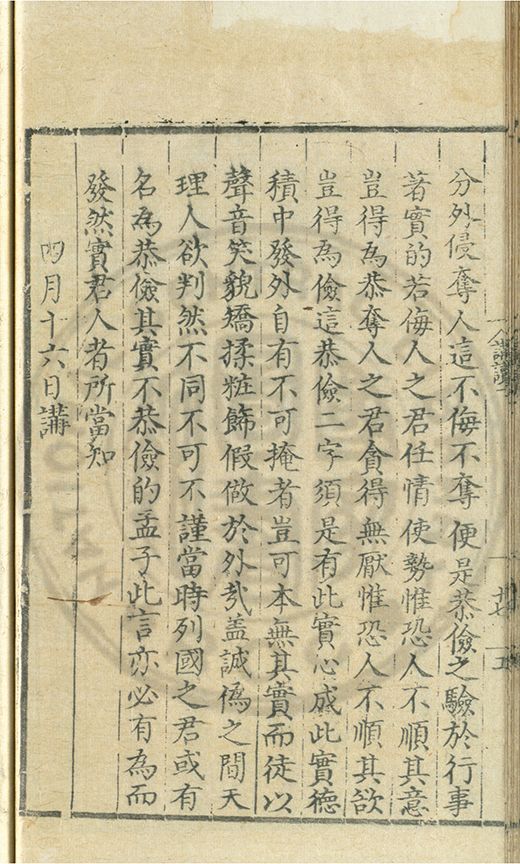 分外侵奪人這不侮不奪便是恭儉之驗於行事
著實的若侮人之君任情使勢惟恐人不順其意
豈得為恭奪人之君貪得無厭惟恐人不順其欲
豈得為儉這恭儉二字須是有此實心盛此實德
積中發外自有不可掩者豈可本無其實而徒以
聲音笑貌矯揉粧飾假做於外㢤盖誠偽之間天
理人欲判然不同不可不謹當時列國之君或有
名為恭儉其實不恭儉的孟子此言亦必有為而
發然實君人者所當知
四月十六日講